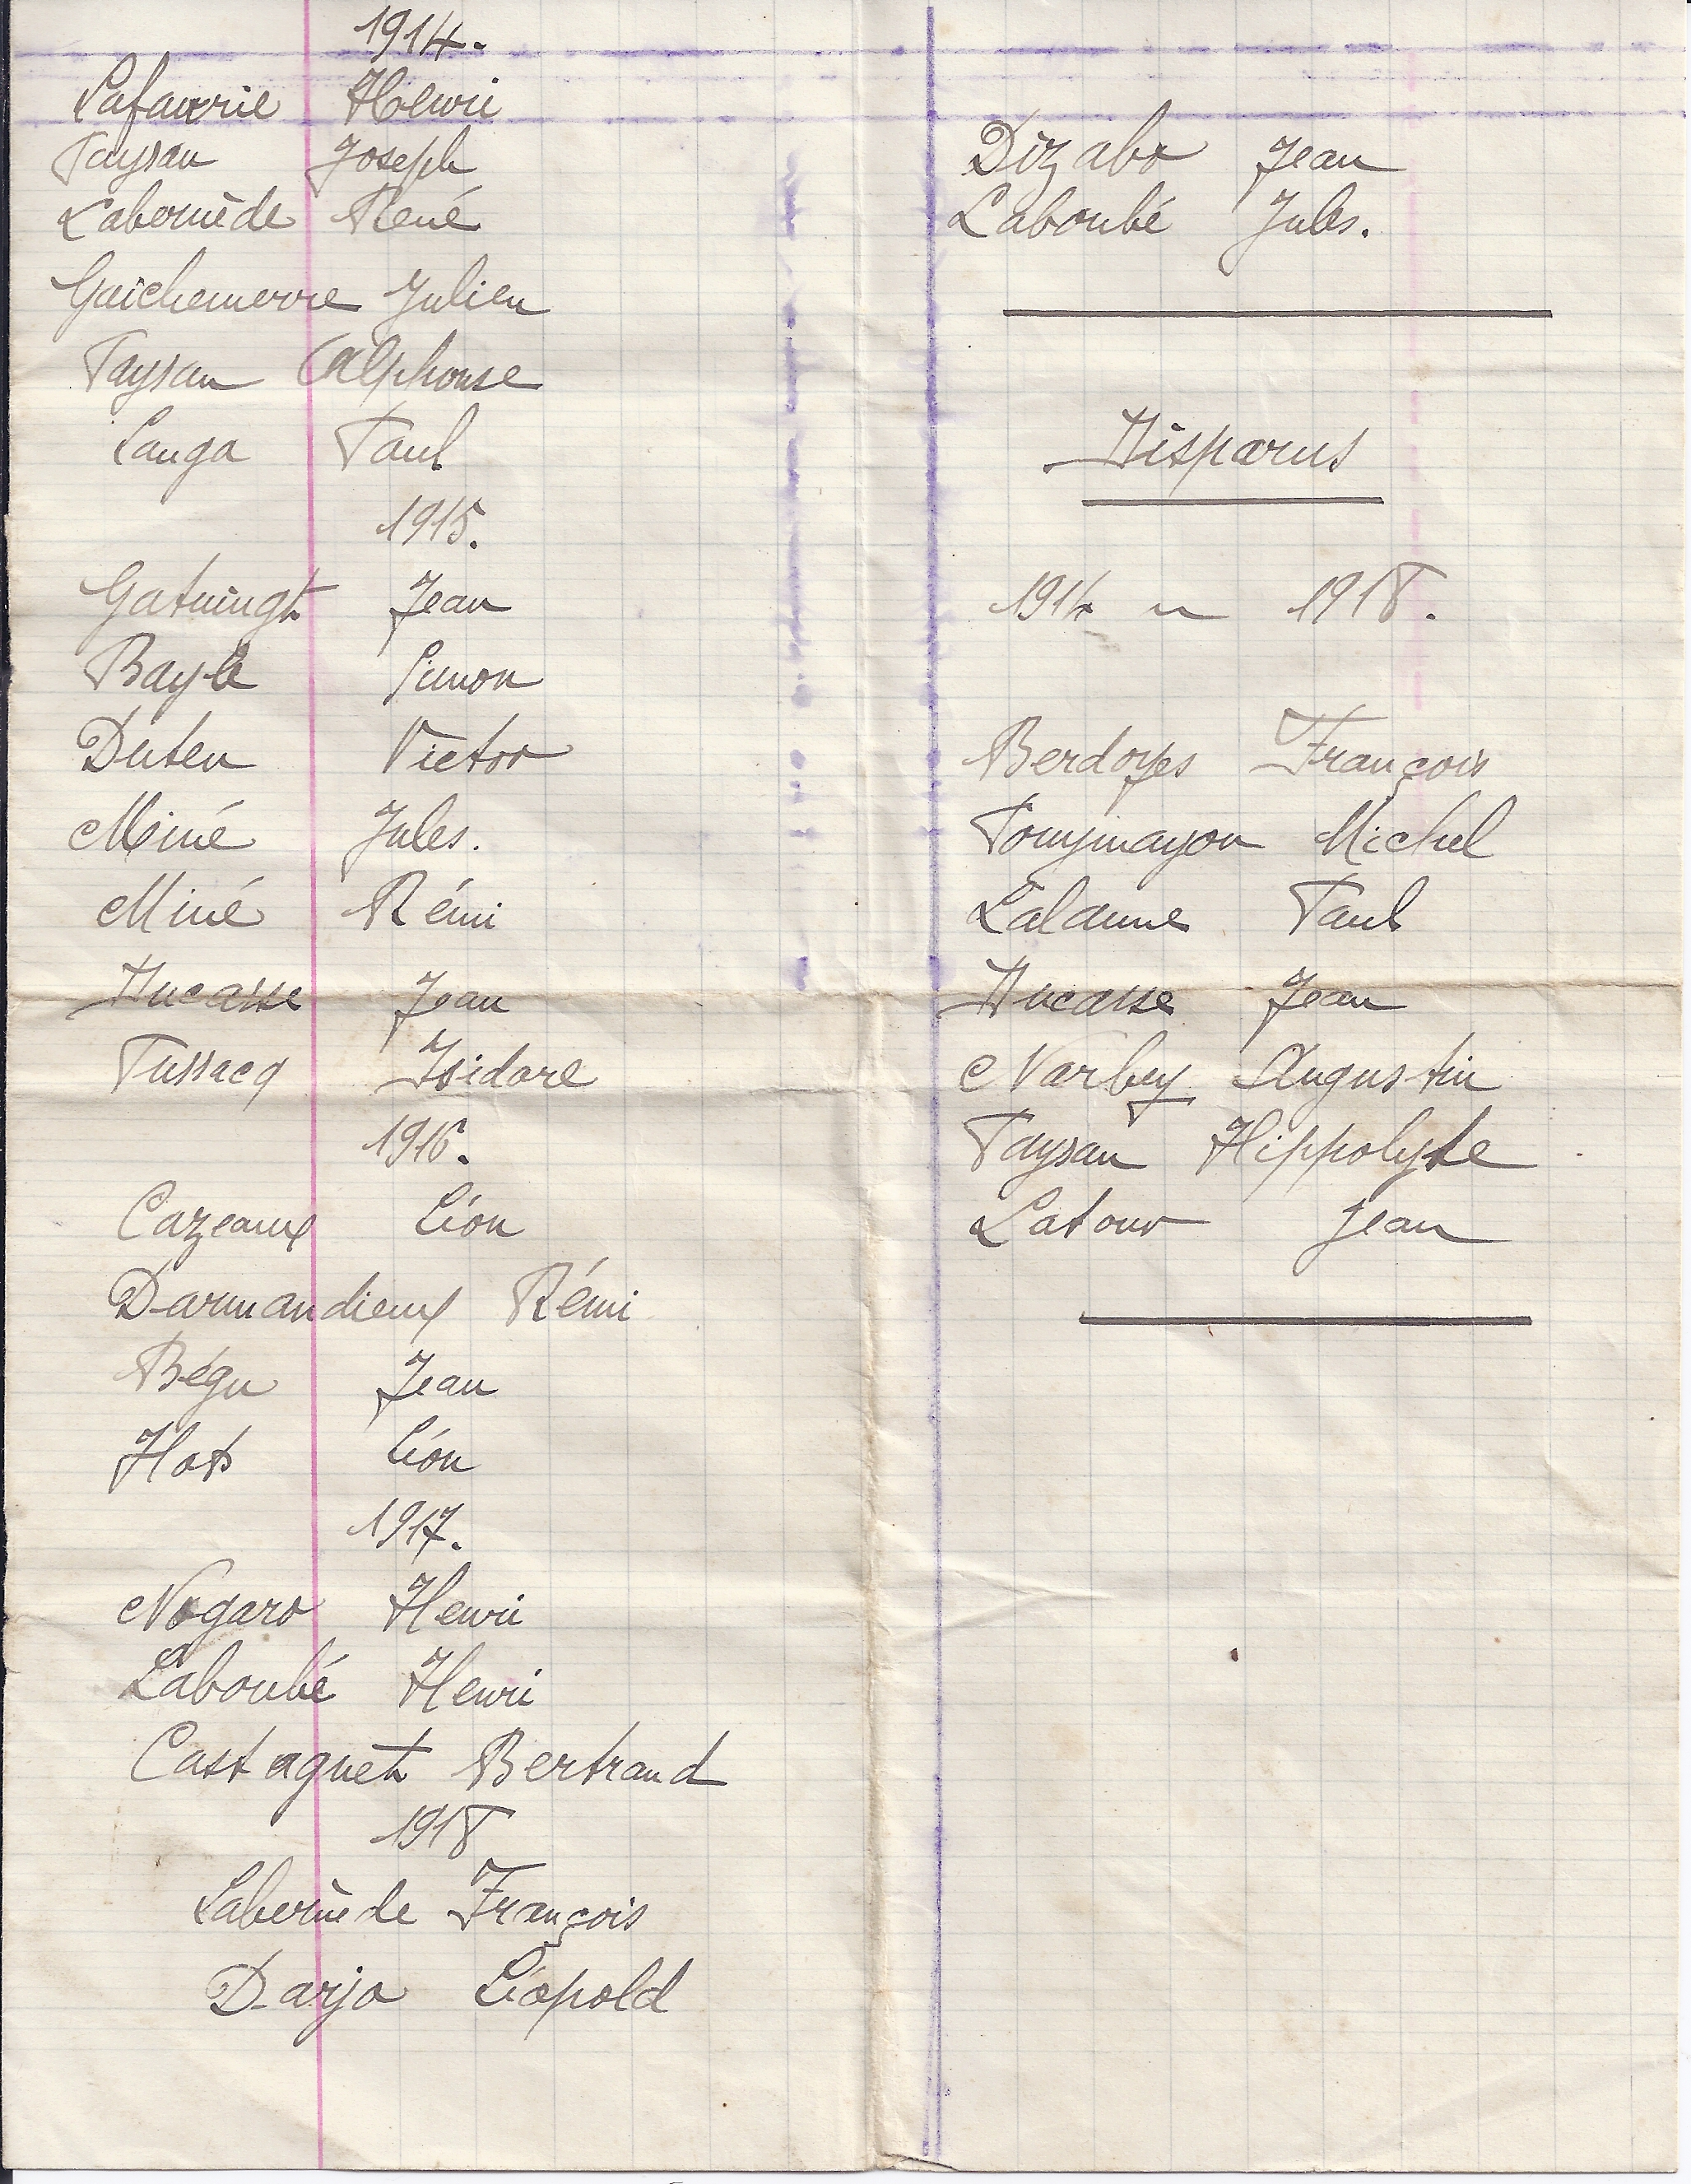 1914.
Lafaurie Henri
Paysan Joseph
Labernède René
Gaichemerre Julien
Paysan Alphonse
Lauga Paul
1915.
Gatuingt Jean
Bayle Simon
Duten Victor
Miné Jules.
Miné Rémi
Ducasse Jean
Tussacq Isidore
1916.
Cazeaux Léon
Darmandieux Rémi
Bégu Jean
Hots Léon
1917.
Nogaro Henri
Laboubé Henri
Castagnet Bertrand
1918
Labernède François
Darjo Léopold
Dizabo Jean
Laboubé Jules.
Disparus
1914 1918.
Berdoyes François
Michel
Lalanne Paul
Ducasse Jean
Narbey Augustin
Paysan Hippolyte
Latour Jean